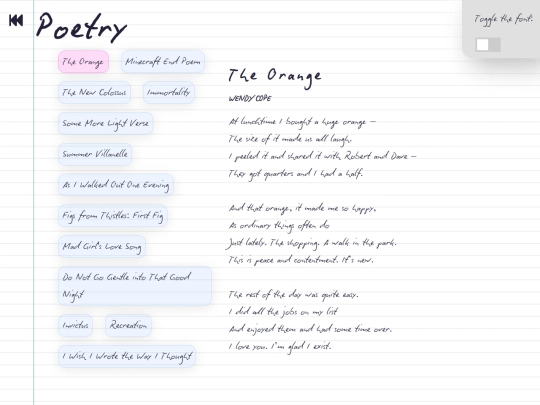 Poetry
Toggle the font:
The Orange
Minecraft End Poem
The New Colossus
Immortality
Some More Light Verse
Summer Villanelle
As I Walked Out One Evening
Figs from Thistles: First Fig
Mad Girl's Love Song
Do Not Go Gentle into That Good
Night
Invictus
Recreation
I Wish I Wrote the Way I Thought
The Orange
WENDY COPE
At lunchtime I bought a huge orange —
The size of it made us all laugh.
I peeled it and shared it with Robert and Dave —
They got quarters and I had a half.
And that orange, it made me so happy,
As ordinary things often do
Just lately. The shopping. A walk in the park.
This is peace and contentment. It's new.
The rest of the day was quite easy.
I did all the jobs on my list
And enjoyed them and had some time over.
I love you. I'm glad I exist.